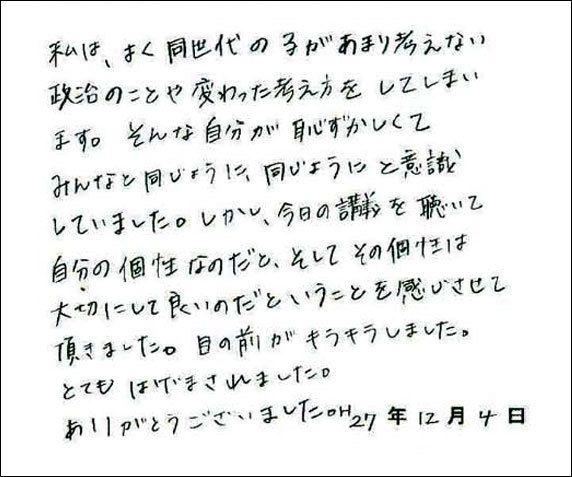 私は、よく同世代の子があまり考えない
政治のことや変わった考え方をしてしまい
ます。そんな自分が恥ずかしくて
みんなと同じように、同じようにと意識
していました。しかし、今日の講義を聴いて
自分の個性なのだと、そしてその個性は
大切にして良いのだということを感じさせて
頂きました。目の前がキラキラしました。
とてもはげまされました。
ありがとうございました。H27年12月4日